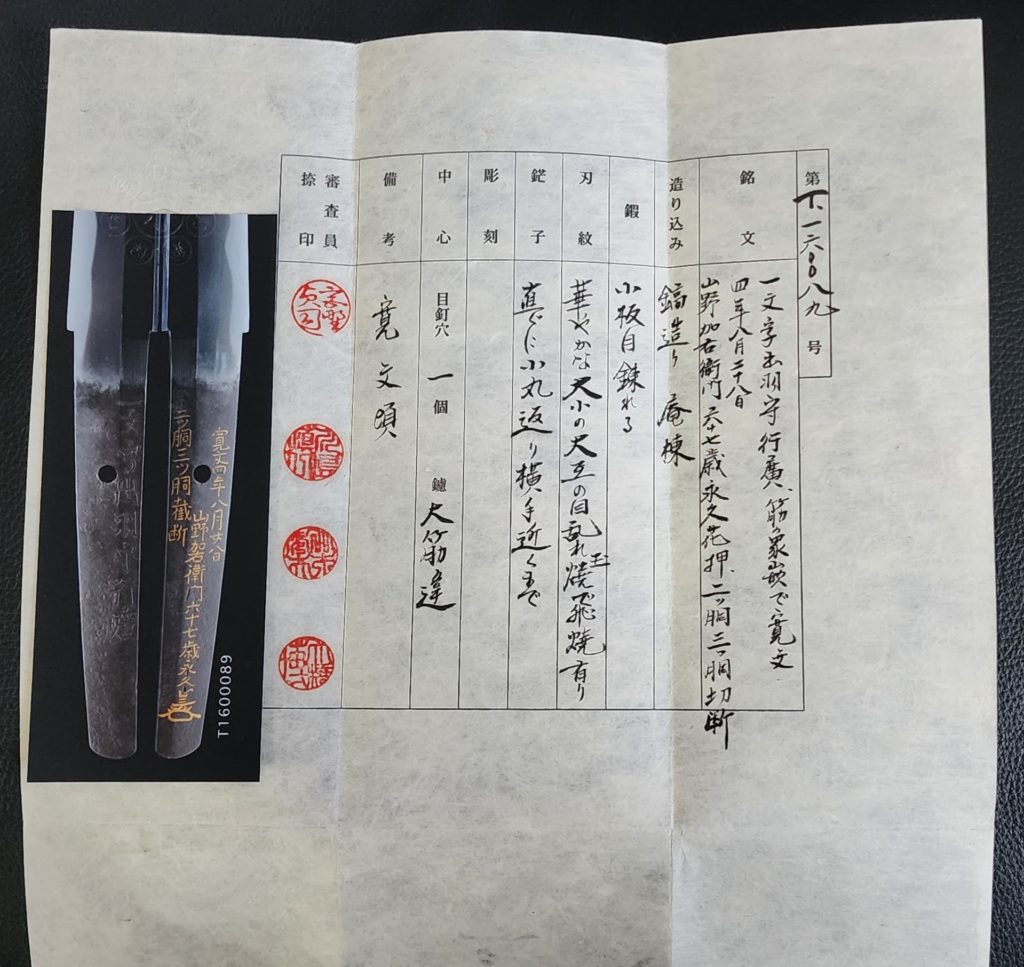 第T、一六〇〇八九号
銘文
一文字出羽守行廣、筋の象嵌で寛文
四年八月二十八日
山野加右衛門六十七歳永久花押、二ッ胴三ッ胴切断
造り込み
鎬造り 庵棟
鍛
小板目錬れる
刃紋
華やかな大小の大互の目乱れ玉焼で飛焼有り
鋩子
真ぐに小丸返り横手近くまで
彫刻
中心
目釘穴 一個 鑢 大筋違
備考
寛文頃
審査員
捺印
寛文四年八月廿八日
山野加右衛門六十七歳永久
二ッ胴三ッ胴截断
T1600089